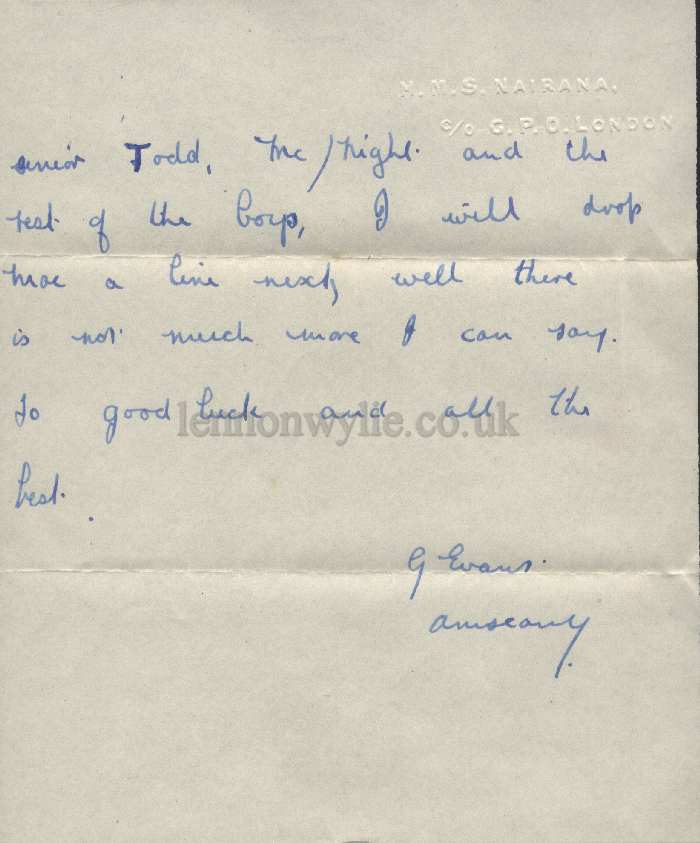 H.M.S. NAIRANA.
c/o G.P.O. LONDON
Todd, and the
rest of the boys, I will drop
Mac a line next, well there
is not much more I can say.
So good luck and all the
best.
lennonwylie.co.uk
G Evans.